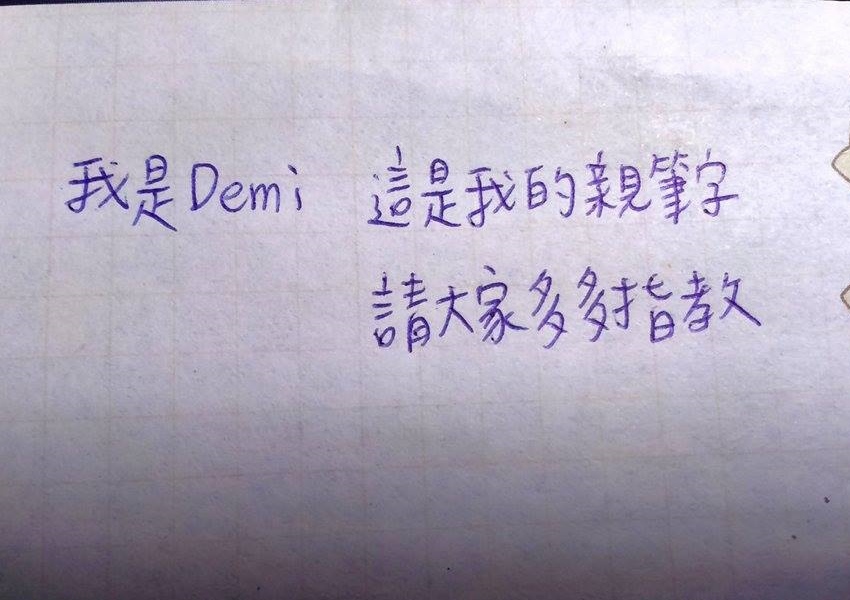 我是Demi 這是我的親筆字
請大家多多指教